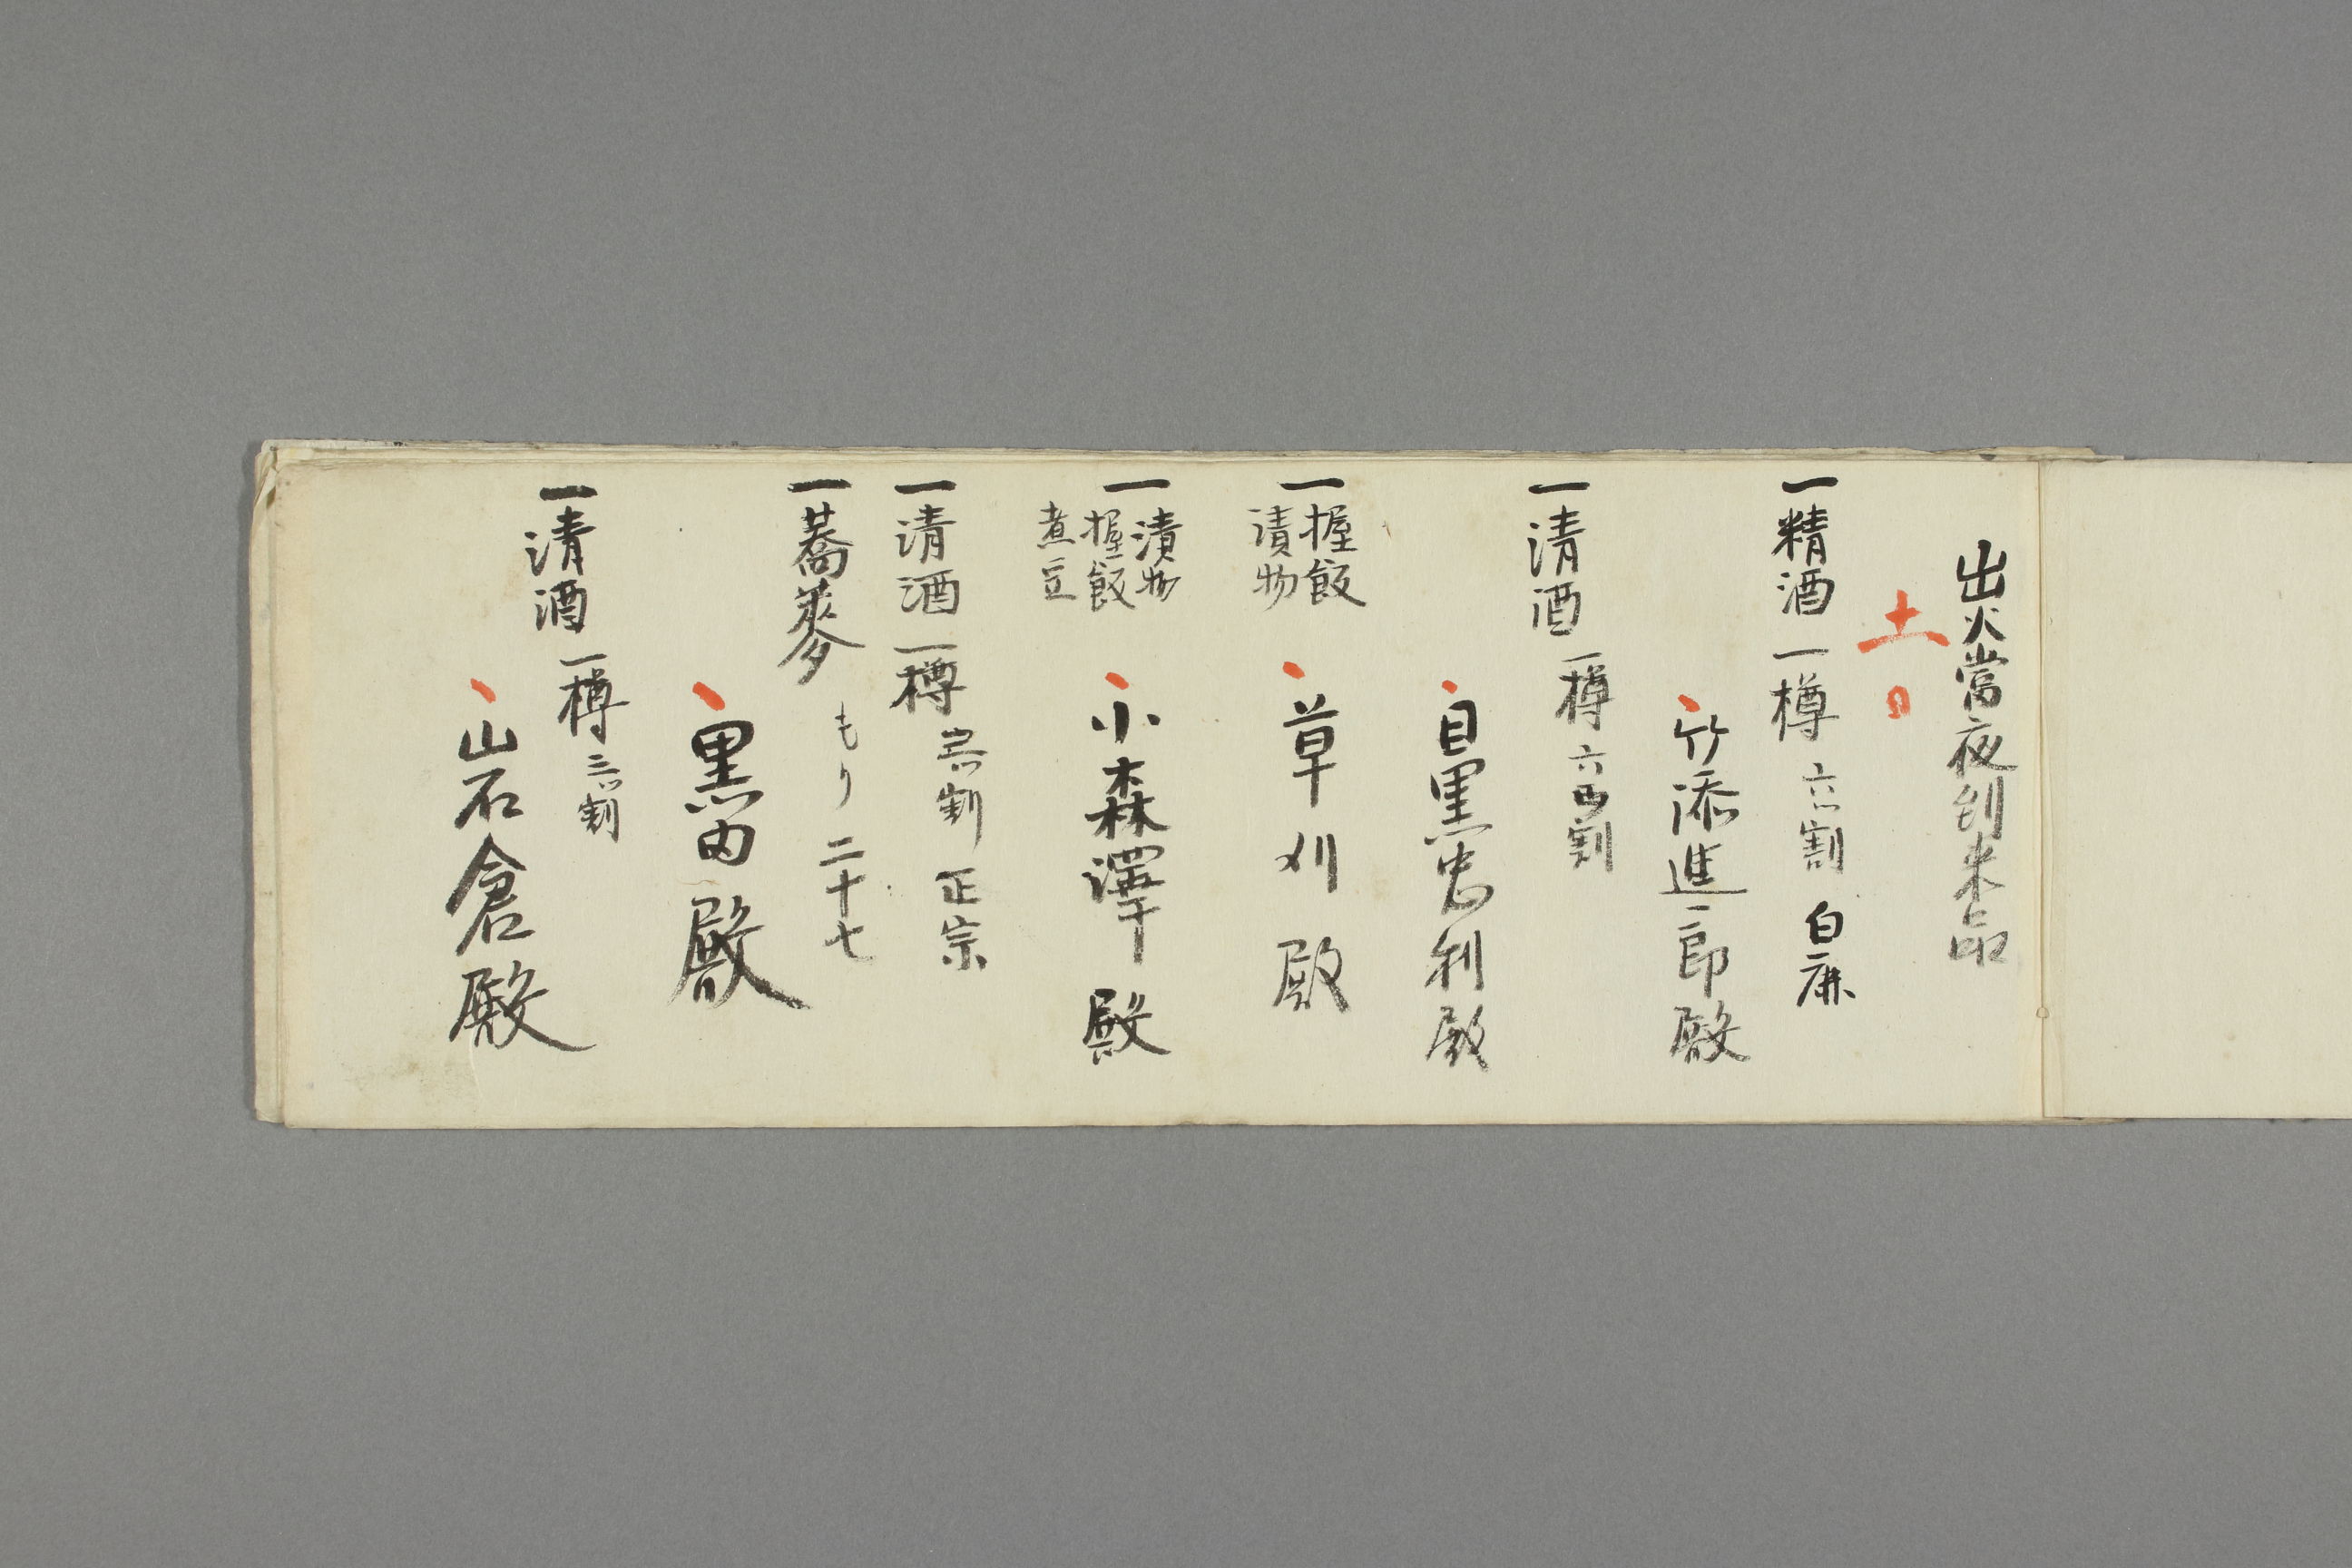 出火當夜到来品
十一日
一精酒一樽 六割 白鹿
竹添進一郎殿
一清酒一樽 六四割
目黒忠利殿
一握飯
漬物
草刈殿
一漬物
握飯
煮豆
小森澤殿
一清酒一樽 割 正宗
一蕎麥 もり 二十七
黒田殿
一清酒一樽 三割
岩倉殿